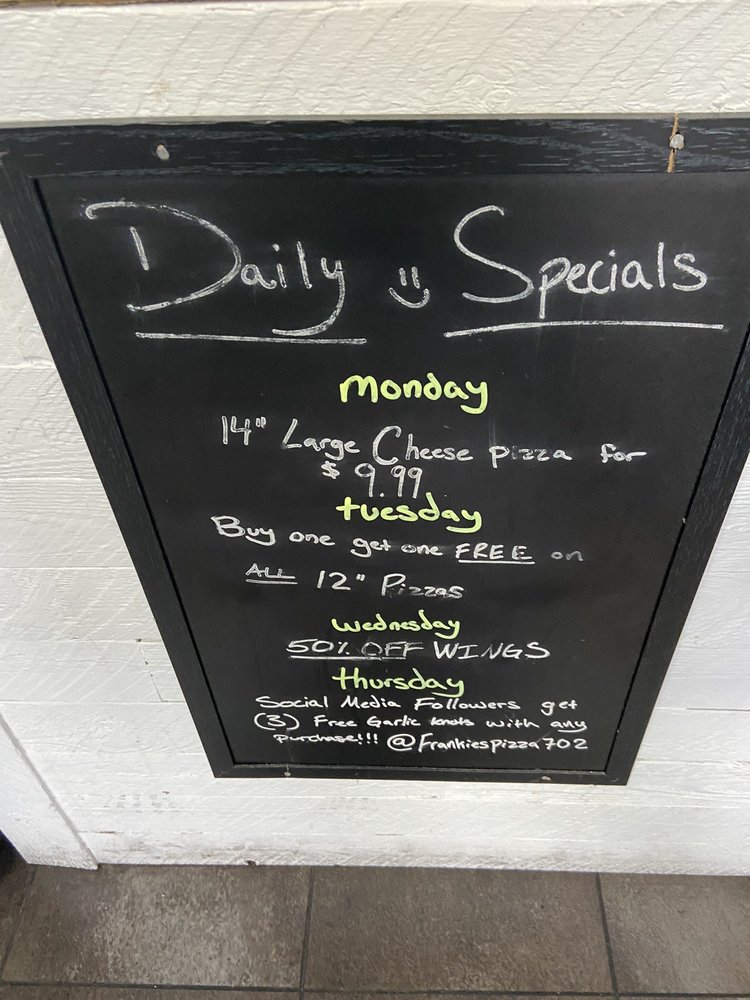 Daily Specials
monday
14" Large Cheese pizza for
$ 9.99
tuesday
Buy one get one FREE on
ALL 12" Pizzas
wednesday
50% OFF WINGS
thursday
Social Media Followers get
(3) Free Garlic knots with any
purchase!!! @frankiespizza702